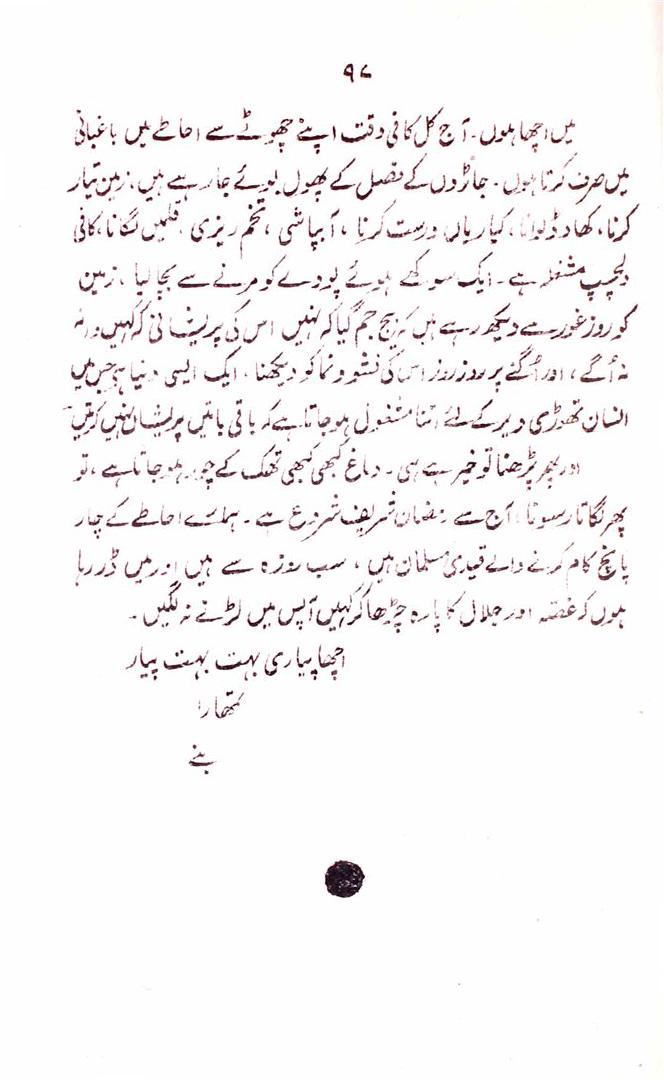 ۹۷
میں اچھا ہوں۔ آج کل کافی وقت اپنے چھوٹے سے احاطے میں باغبانی
میں صرف کرتا ہوں۔ جاڑوں کے فصل کے پھول بوئے جارہے ہیں، زمین تیار
کرنا، کھاد ڈلوانا، کیاریاں درست کرنا، آبپاشی، تخم ریزی، قلمیں لگانا، کافی
دلچسپ مشغلہ ہے۔ ایک سوکھے ہوئے پودے کو مرنے سے بچا لیا، زمین
کو روز غور سے دیکھ رہے ہیں کہ بیج جم گیا کہ نہیں اس کی پریشانی کہ کہیں دانہ
نہ اُگے، اور اُگنے پر روز روز اس کی نشوونما کو دیکھنا، ایک ایسی دنیا ہے جس میں
انسان تھوڑی دیر کے لئے اتنا مشغول ہو جاتا ہے کہ باقی باتیں پریشان نہیں کرتیں
اور پھر پڑھنا تو خیر ہے ہی۔ دماغ کبھی کبھی تھک کے چور ہو جاتا ہے، تو
پھر لگاتار سوتا، آج سے رمضان شریف شروع ہے۔ ہمارے احاطے کے چار
پانچ کام کرنے والے قیدی مسلمان ہیں، سب روزہ سے ہیں اور میں ڈر رہا
ہوں کہ غصہ اور جلال کا پارہ چڑھا کر کہیں آپس میں لڑنے نہ لگیں۔
اچھا پیاری بہت بہت پیار
تمھارا
بنے